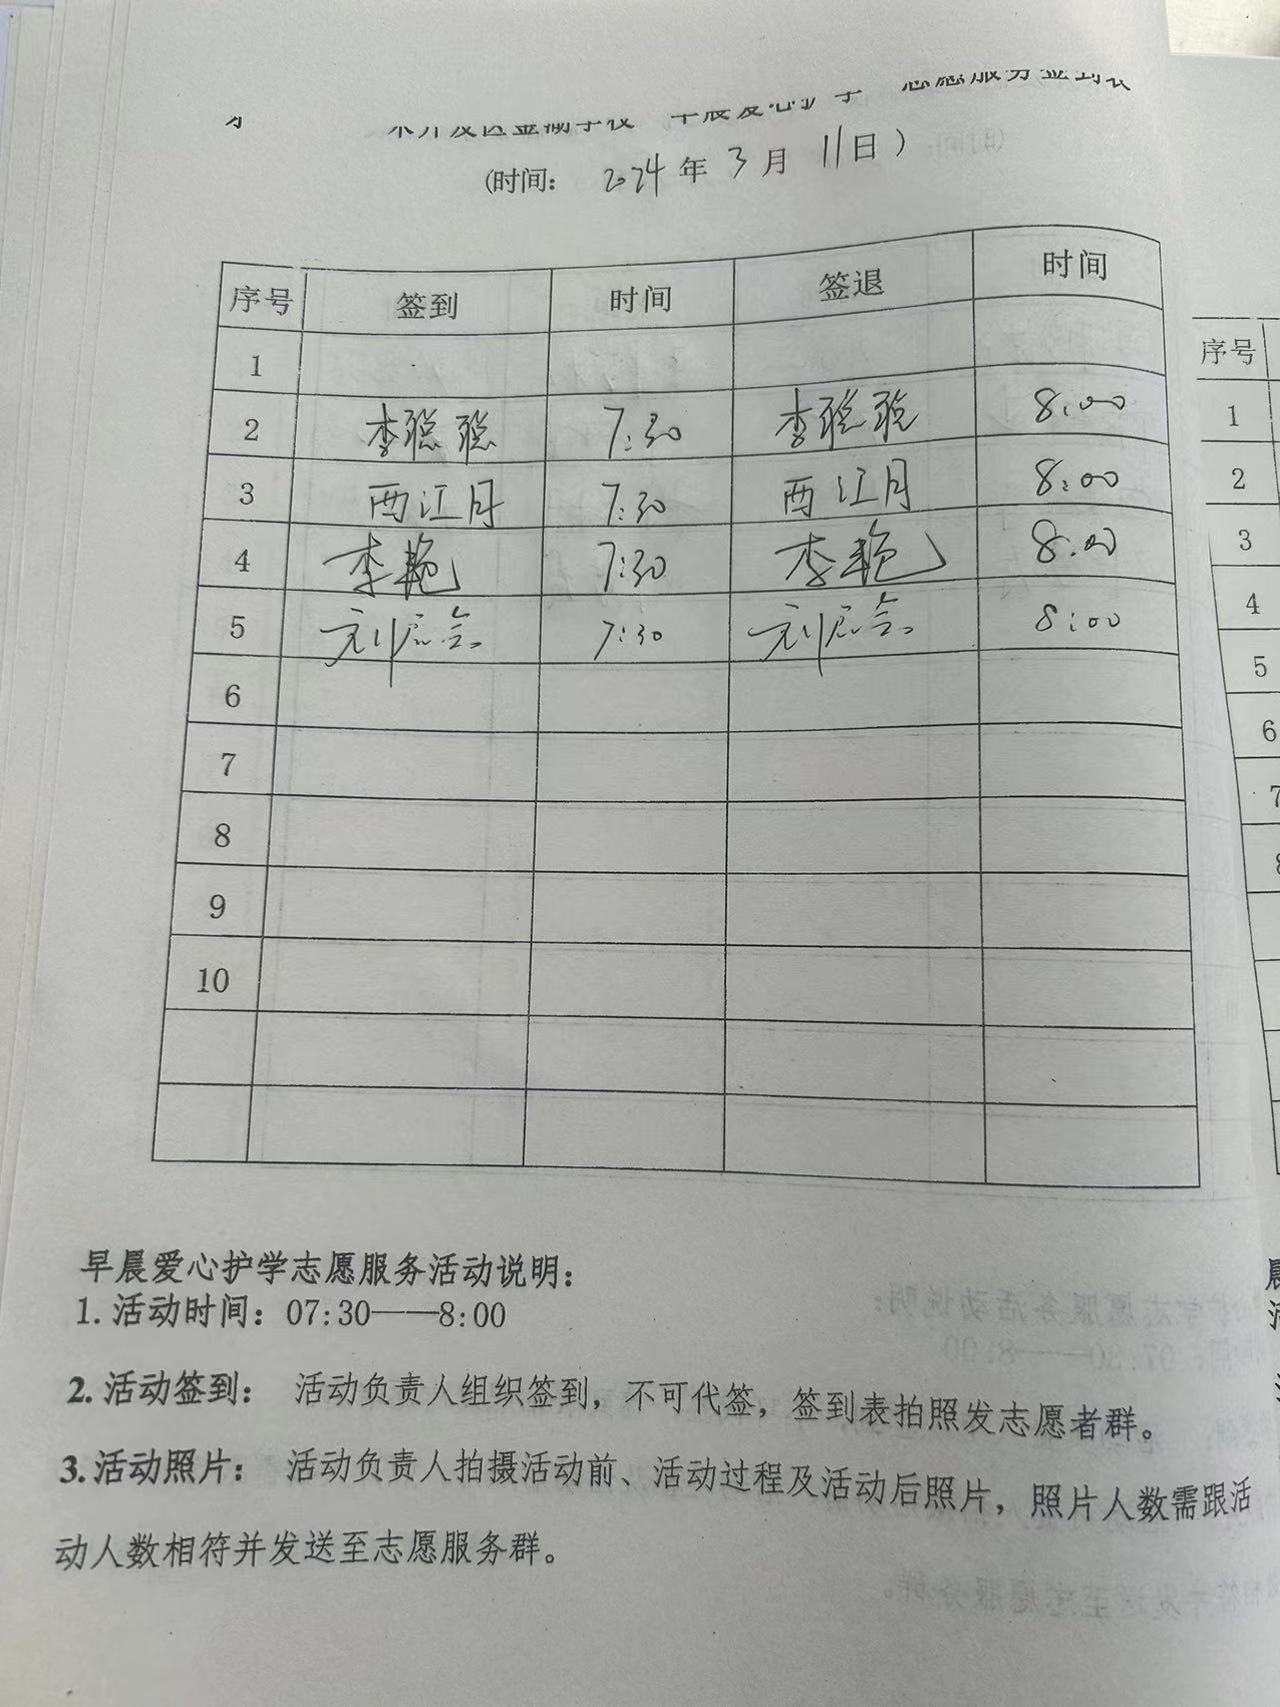 (时间: 2024年3月11日)
序号 签到 时间 签退 时间
1
2 李聪聪 7:30 李聪聪 8:00
3 西江月 7:30 西江月 8:00
4 李艳 7:30 李艳 8:00
5 7:30 8:00
6
7
8
9
10
早晨爱心护学志愿服务活动说明:
1. 活动时间: 07:30——8:00
2. 活动签到: 活动负责人组织签到, 不可代签, 签到表拍照发志愿者群。
3. 活动照片: 活动负责人拍摄活动前、活动过程及活动后照片, 照片人数需跟活
动人数相符并发送至志愿服务群。
序号
1
2
3
4
5
6
7
8